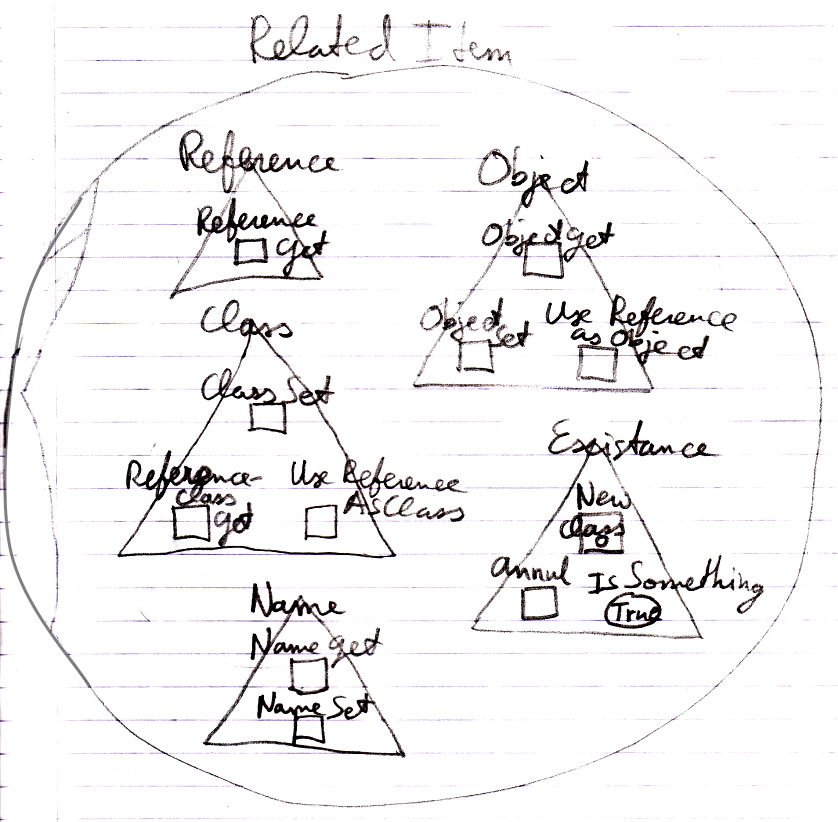 Related Item
Reference
Reference
get
Object
Object get
Object
Set
Use Reference
as Object
Class
Class Set
Reference-
class
get
Use Reference
As Class
Existance
New
Class
annul
Is Something
True
Name
Name get
Name Set